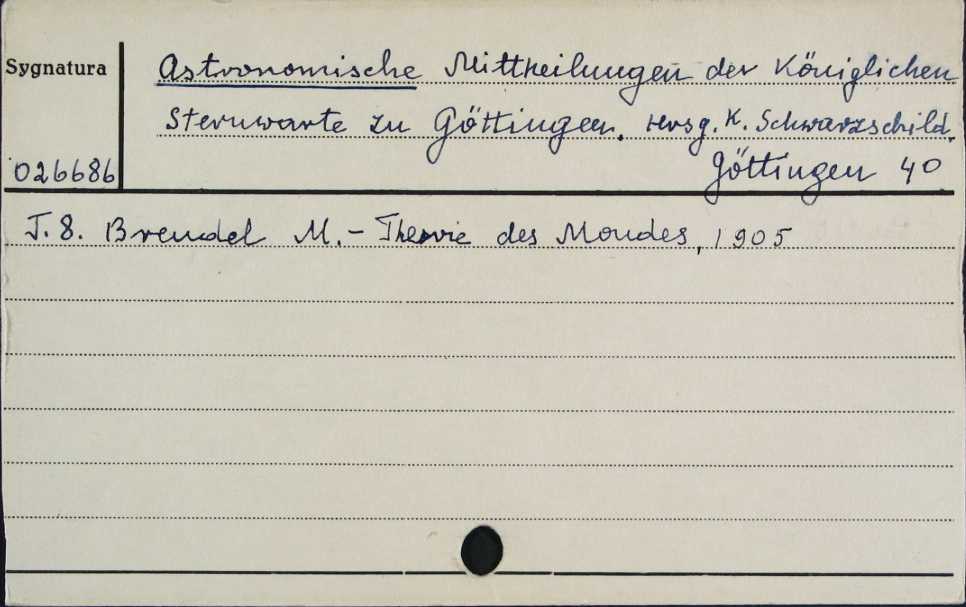 Astronomische Mittheilungen der Königlichen
Sygnatura
Sternwarte zu Göttingen. Hrsg. K. Schwarzschild.
026686
Göttingen 40
T. 8. Brendel M. - Theorie des Mondes, 1905